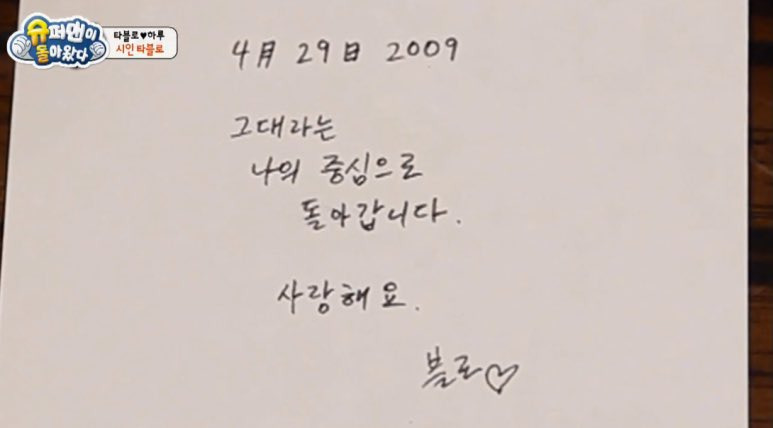 슈퍼맨이
돌아왔다
타블로♥하루
시인 타블로
4月 29日 2009
그대라는
나의 중심으로
돌아갑니다.
사랑해요.
블로♡